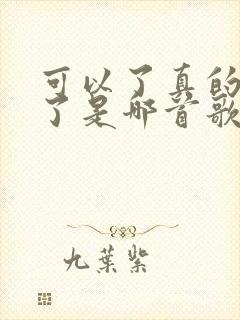 可以了真的
了是哪首歌
九葉紫